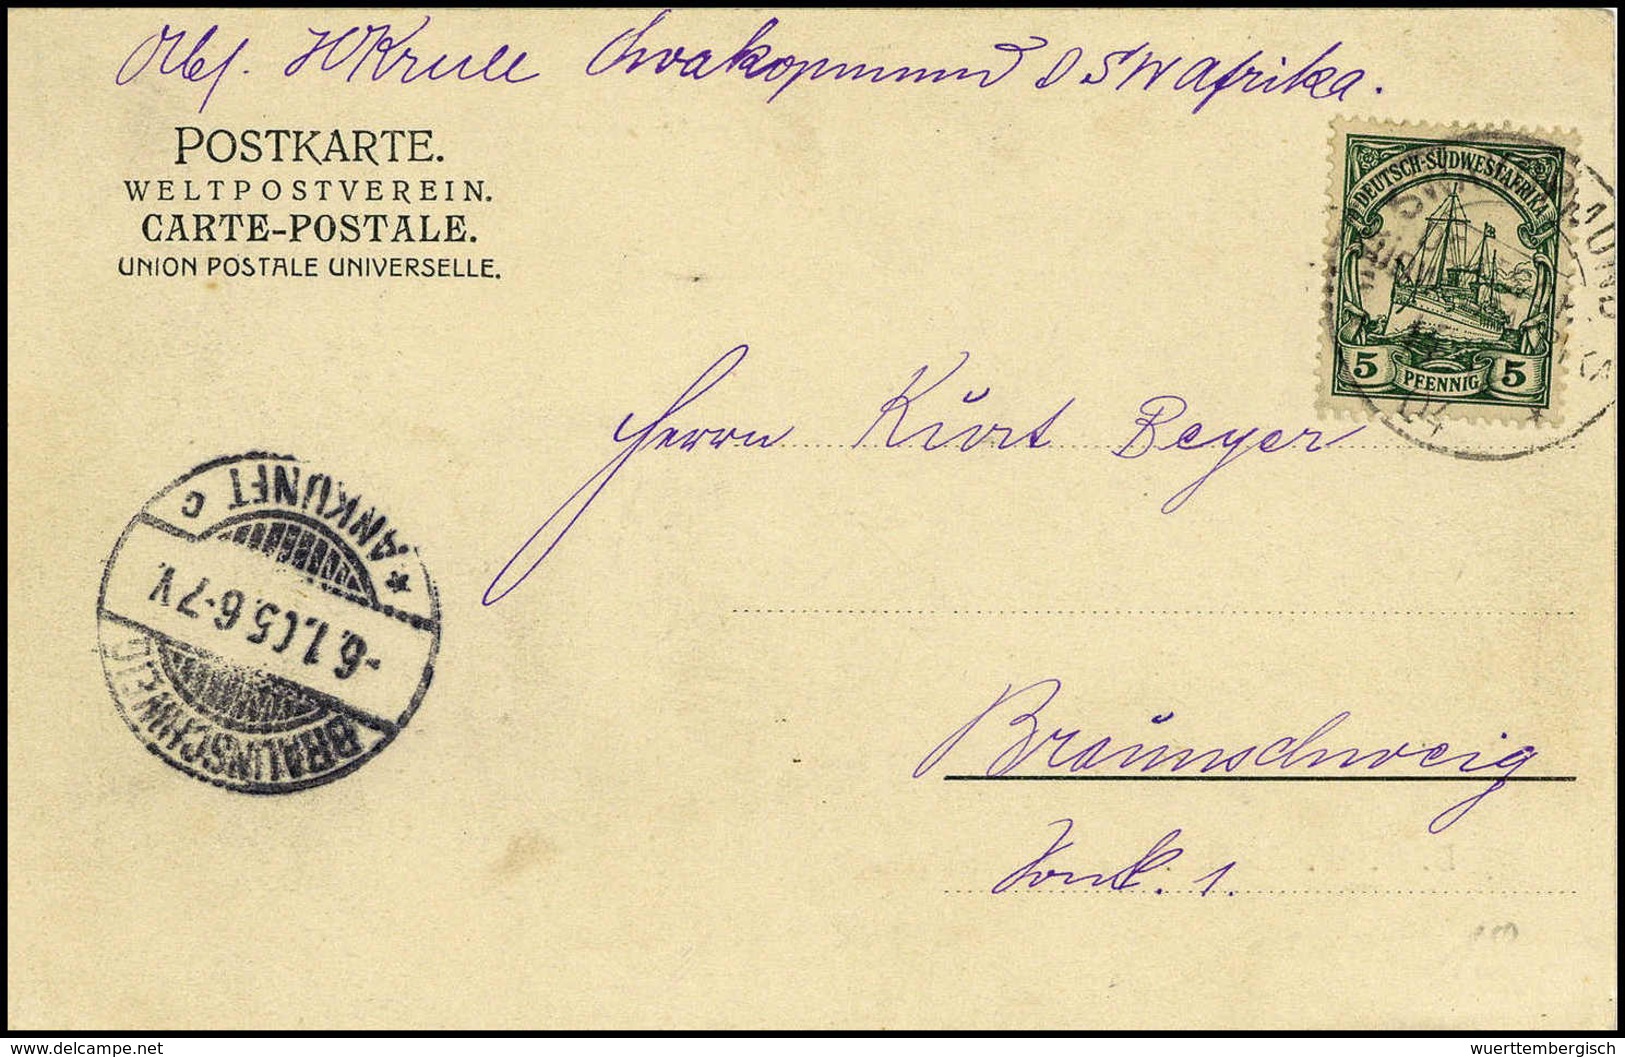 Abs. H Krull Swakopmund D S W Afrika.
POSTKARTE.
WELTPOSTVEREIN.
CARTE-POSTALE.
UNION POSTALE UNIVERSELLE.
DEUTSCH-SÜDWESTAFRIKA
5 PFENNIG 5
Herrn Kurt Beyer
* ANKUNFT C
-6.1.05.6-7V.
BRAUNSCHWEIG
Braunschweig
1.
delcampe.net
wuerttembergisch